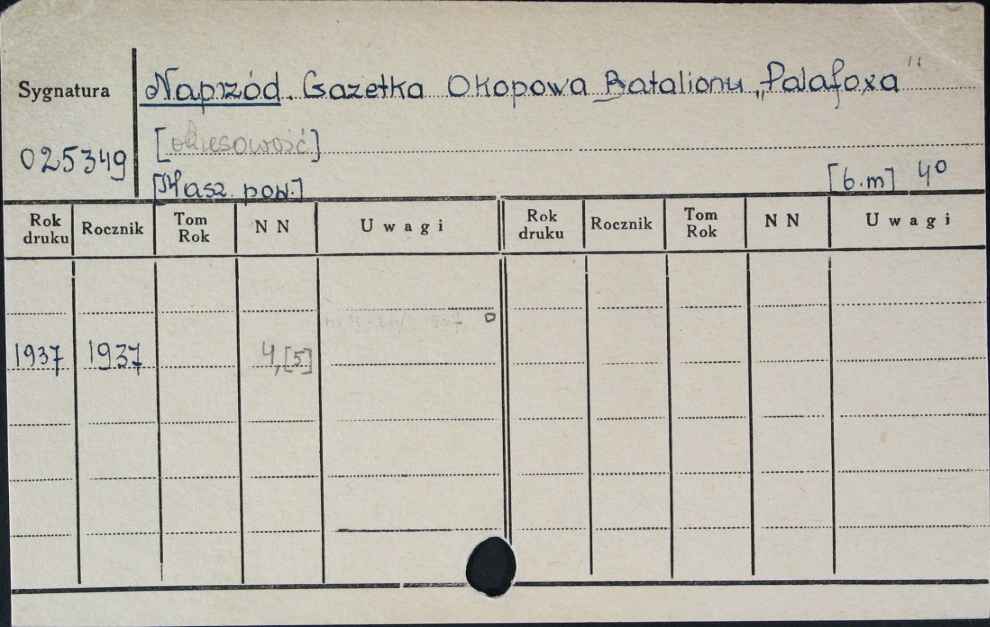 Sygnatura
Naprzód. Gazetka Okopowa Batalionu „Palafoxa"
[okresowość]
025349
[Masz. pow.] [b.m] 4º
Rok druku Rocznik Tom Rok NN Uwagi Rok druku Rocznik Tom Rok NN Uwagi
1937 1937 4,[5]